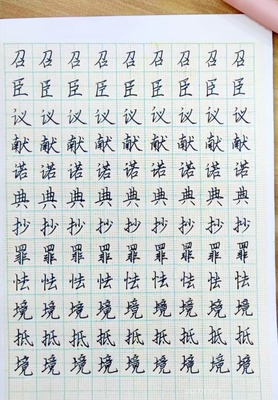 召召召召召召召召召
臣臣臣臣臣臣臣臣臣
议议议议议议议议议
献献献献献献献献献
诺诺诺诺诺诺诺诺诺
典典典典典典典典典
抄抄抄抄抄抄抄抄抄
罪罪罪罪罪罪罪罪罪
怯怯怯怯怯怯怯怯怯
境境境境境境境境境
抵抵抵抵抵抵抵抵抵
境境境境境境境境境